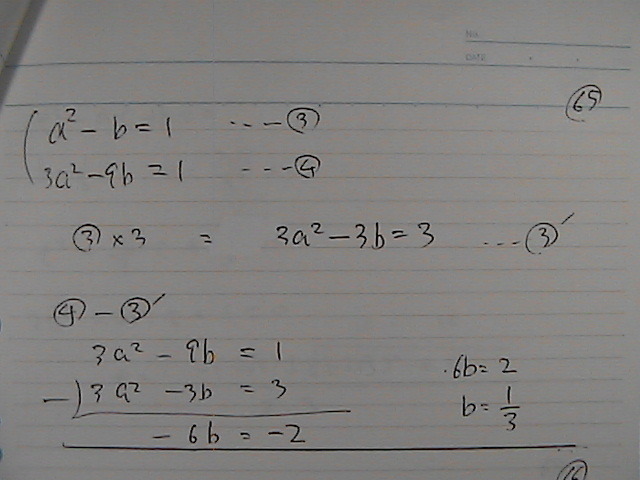 NO.
DATE
65
a² - b = 1 ---- ③
3a² - 9b = 1 ---- ④
③ × 3 = 3a² - 3b = 3 ---- ③′
④ - ③′
3a² - 9b = 1
-) 3a² - 3b = 3
- 6b = -2
6b = 2
b = 1/3